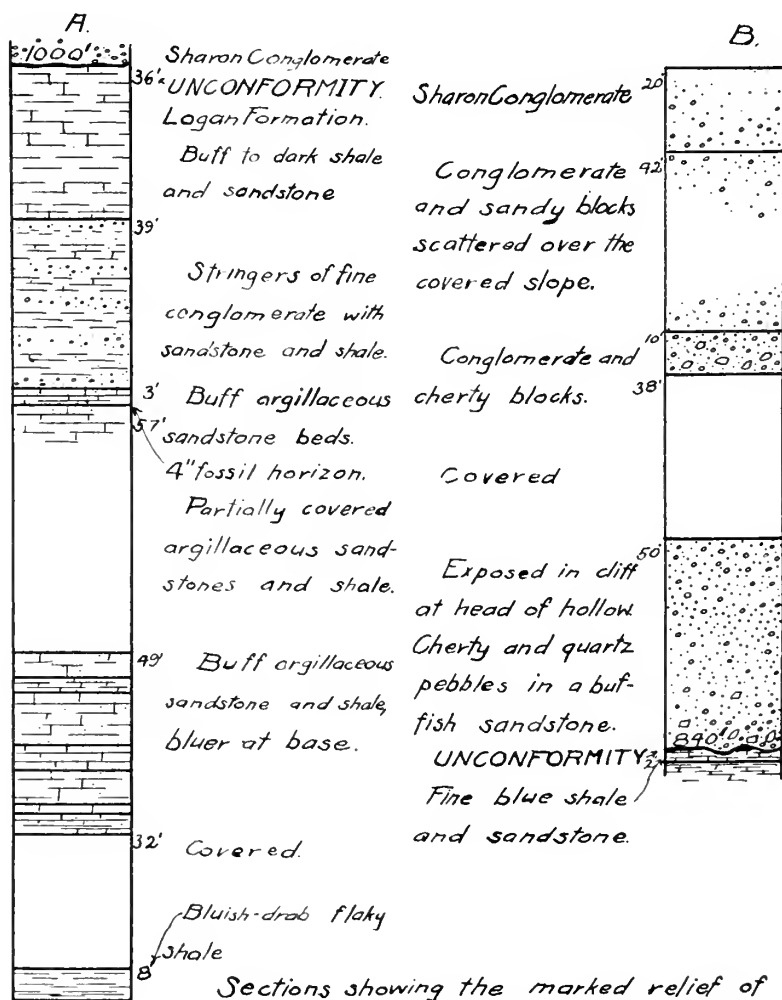 A.
1000'
Sharon Conglomerate
36'
UNCONFORMITY.
Logan Formation.
Buff to dark shale
and sandstone
39'
Stringers of fine
conglomerate with
sandstone and shale.
3'
Buff argillaceous
sandstone beds.
57'
4" fossil horizon.
Partially covered
argillaceous sand-
stones and shale.
49'
Buff argillaceous
sandstone and shale,
bluer at base.
32'
Covered.
Bluish-drab flaky
shale
8'
B.
20'
Sharon Conglomerate
42'
Conglomerate
and sandy blocks
scattered over the
covered slope.
10'
Conglomerate and
cherty blocks.
38'
Covered
50'
Exposed in cliff
at head of hollow.
Cherty and quartz
pebbles in a buf-
fish sandstone.
840'
UNCONFORMITY
2'
Fine blue shale
and sandstone.
Sections showing the marked relief of